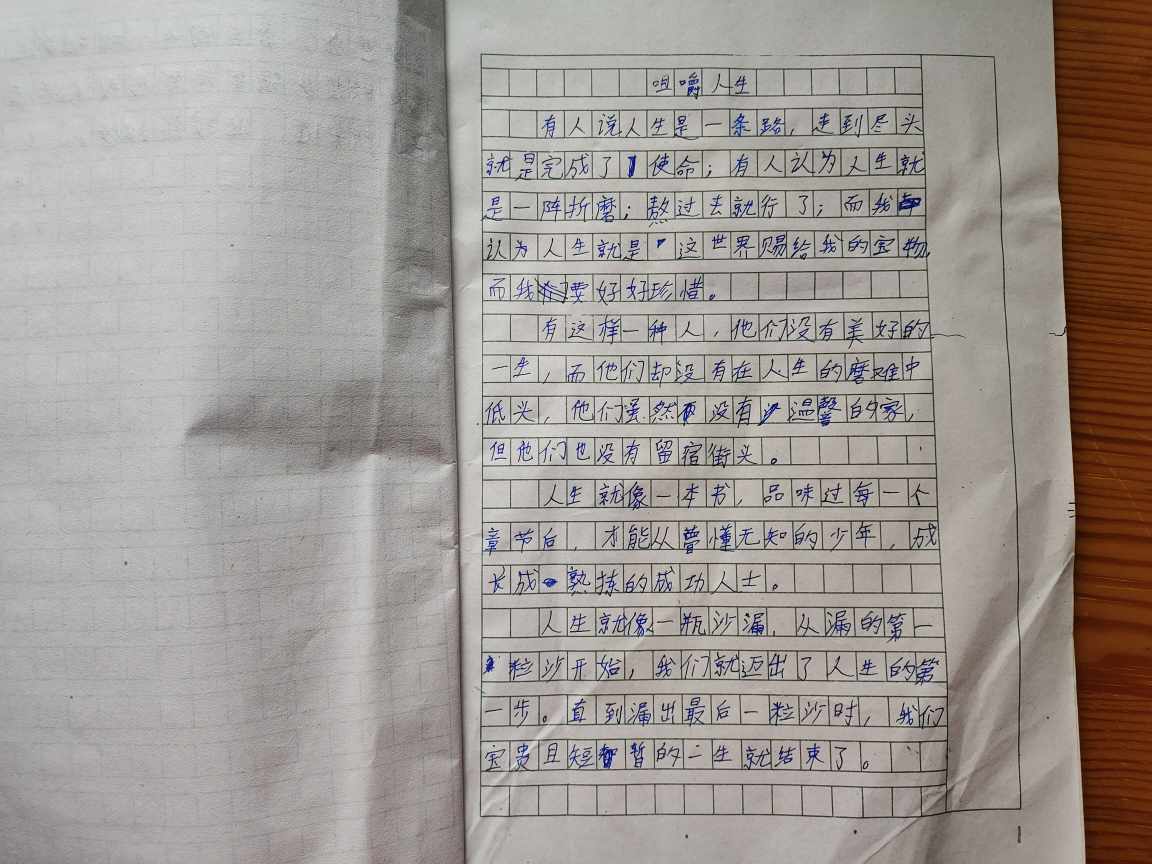 咀嚼人生
有人说人生是一条路，走到尽头
就是完成了使命；有人认为人生就
是一阵折磨；熬过去就行了；而我
认为人生就是这世界赐给我的宝物，
而我要好好珍惜。
有这样一种人，他们没有美好的
一生，而他们却没有在人生的磨难中
低头，他们虽然没有温馨的家，
但他们也没有留宿街头。
人生就像一本书，品味过每一个
章节后，才能从懵懂无知的少年，成
长成熟拣的成功人士。
人生就像一瓶沙漏，从漏的第一
粒沙开始，我们就迈出了人生的第
一步。直到漏出最后一粒沙时，我们
宝贵且短暂的一生就结束了。
1